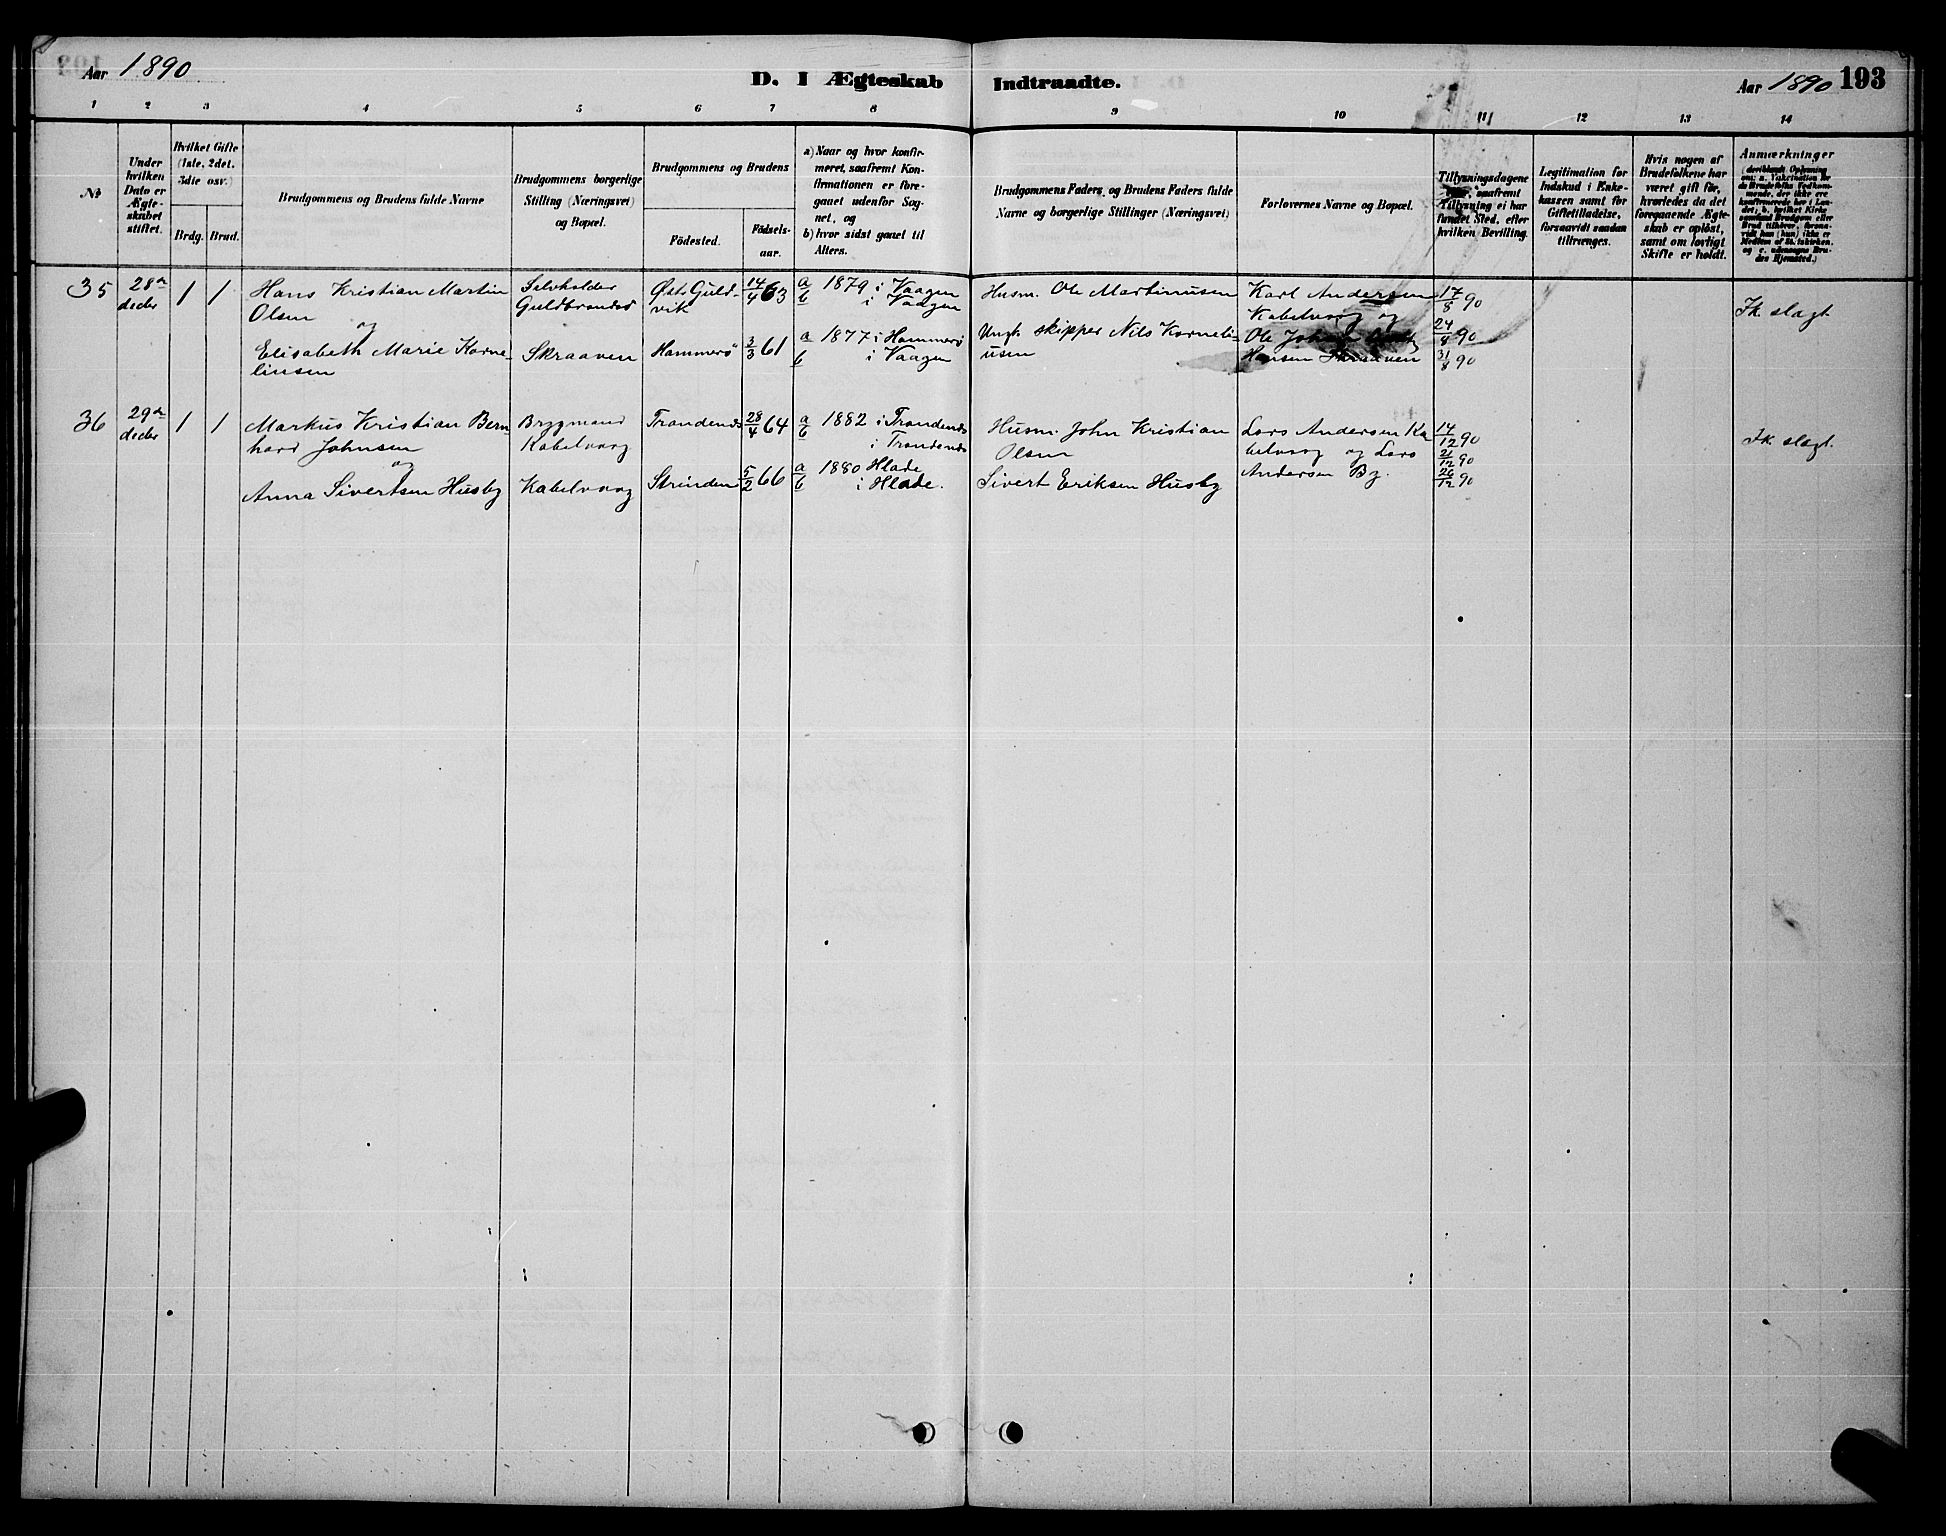 Aar 1890
D. I Ægteskab Indtraadte.
Aar 1890 193
1 2 3 4 5 6 7 8 9 10 11 12 13 14
No
Under
hvilken
Dato er
Ægte-
skabet
stiftet.
Hvilket Gifte
(1ste, 2det.
3die osv.)
Brdg. Brud.
Brudgommens og Brudens fulde Navne
Brudgommens borgerlige
Stilling (Næringsvei)
og Bopæl.
Brudgommens og Brudens
Födested.
Födsels-
aar.
a) Naar og hvor konfir-
meret, saafremt Kon-
firmationen er fore-
gaaet udenfor Sog-
net, og
b) hvor sidst gaaet til
Alters.
Brudgommens Faders og Brudens Faders fulde
Navne og borgerlige Stillinger (Næringsvei)
Forlovernes Navne og Bopæl.
Tillysningsdagene
eller, saafremt
Tillysning ei har
fundet Sted, efter
hvilken Bevilling.
Legitimation for
Indskud i Enke-
kassen samt for
Giftetilladelse,
forsaavidt saadan
tiltrænges.
Hvis nogen af
Brudefolkene har
været gift för,
hvorledes da det
foregaaende Ægte-
skab er oplöst,
samt om lovligt
Skifte er holdt.
Anmærkninger
(deriblandt Oplysning
om: a. Vakcination for
de Brudefolks Vedkom-
mende, der ikke ere
konfirmerede her i Lan-
det, b. hvilket Kirke-
samfund Brudgom eller
Brud tilhörer, forsaa-
vidt han (hun) ikke er
Medlem af Statskirken,
og c. udensogns Bru-
des Hjemsted.)
35 28de decbr 1 1
Hans Kristian Martin
Olsen
og
Elisabeth Marie Korne-
liusen
Selvholder
Guldbrandsö
Skraaven
Øst. Guld-
vik
Hammerö
14/4 63
3/3 61
a 1879 i Vaagen
b i Vaagen
a 1877 i Hammerö
b i Vaagen
Husm. Ole Martinusen
Ungk. skipper Nils Korneli-
usen
Karl Andersen
Kabelvaag og
Ole Johan
Hansen Skraaven
17/8 90
24/8 90
31/8 90
Ik. slagt
36 29de decbr 1 1
Markus Kristian Bern-
hard Johnsen
og
Anna Sivertsen Husby
Brygmand
Kabelvaag
Kabelvaag
Trondenes
Strinden
28/4 64
5/2 66
a 1882 i Trondenes
b i Trondenes
a 1880 Hlade
b i Hlade.
Husm. John Kristian
Olsen
Sivert Eriksen Husby
Lars Andersen Ka-
belvaag og Lars
Andersen By.
14/12 90
21/12 90
26/12 90
Ik. slagt.